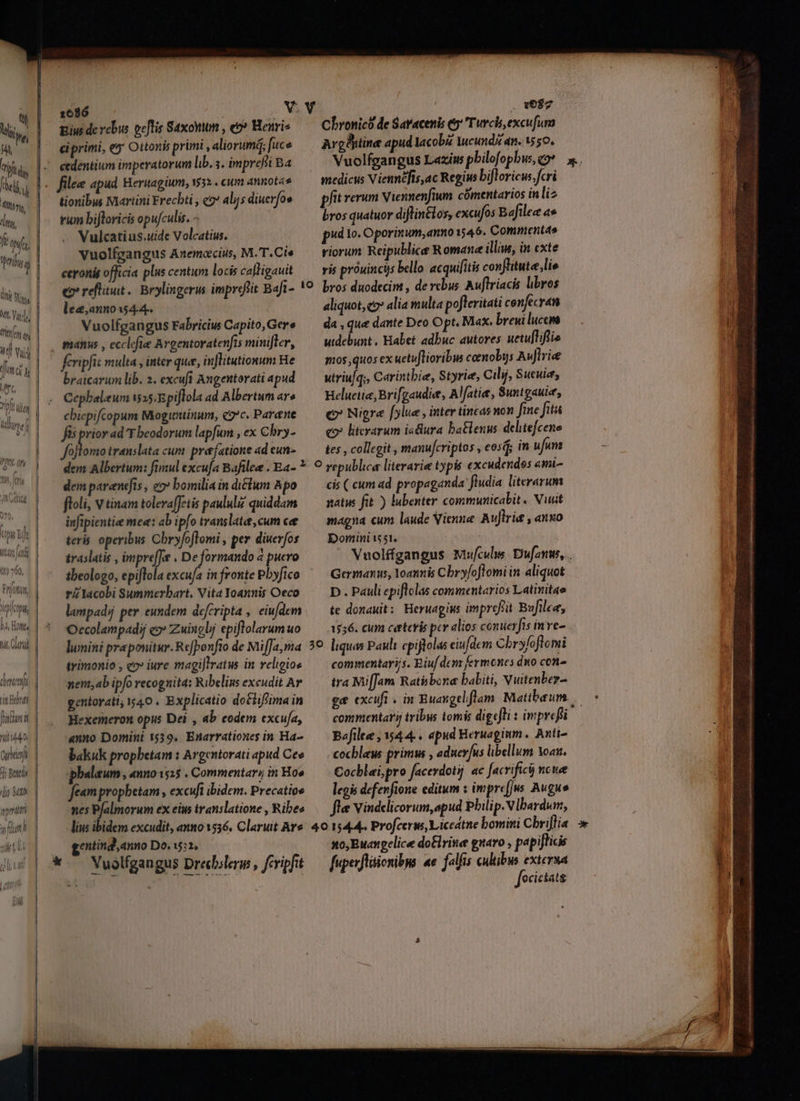 1086 V. V
Eius de rebus gestis Saxonum, & Henri-
ci primi, & Ottonis primi, aliorumq́; suc-
cedentium imperatorum lib. 3. impressi Ba
sileæ apud Heruagium, 1532. cum annota-
tionibus Martini Frechti, & alijs diuerso-
rum historicis opusculis.
Vulcatius. uide Volcatius.
Vuolfgangus Anemœcius, M. T. Ci-
ceronis officia plus centum locis castigauit
& restituit. Brylingerus impressit Basi-
leæ, anno 1544.
Vuolfgangus Fabricius Capito, Ger-
manus, ecclesiæ Argentoratensis minister,
scripsit multa, inter quæ, institutionum He
braicarum lib. 2. excusi Argentorati apud
Cephaleum 1525. Epistola ad Albertum ar-
chiepiscopum Moguntinum, &c. Paræne
sis prior ad Theodorum lapsum, ex Chry-
sostomo translata cum præfatione ad eun-
dem Albertum: simul excusa Basileæ. Ea-
dem parænesis, & homilia in dictum Apo
stoli, Vtinam tolerassetis paululū quiddam
insipientiæ meæ: ab ipso translatæ, cum cæ
teris operibus Chrysostomi, per diuersos
traslatis, impressæ. De formando à puero
theologo, epistola excusa in fronte Physico
rū Iacobi Summerhart. Vita Ioannis Oeco
lampadij per eundem descripta, eiusdem
Oecolampadij & Zuinglij epistolarum uo
lumini præponitur. Responsio de Missa, ma
trimonio, & iure magistratus in religio-
nem, ab ipso recognita: Ribelius excudit Ar
gentorati, 1540. Explicatio doctissima in
Hexemeron opus Dei, ab eodem excusa,
anno Domini 1539. Enarrationes in Ha-
bakuk prophetam: Argentorati apud Ce-
phalæum, anno 1525. Commentarij in Ho-
seam prophetam, excusi ibidem. Precatio-
nes Psalmorum ex eius translatione, Ribe-
lius ibidem excudit, anno 1536. Claruit Ar-
gentinæ, anno Do. 1522.
* Vuolfgangus Drechslerus, scripsit
V 1087
Chronicō de Saracenis & Turcis, excusum
Argētinæ apud Iacobū Iucundū an. 1550.
Vuolfgangus Lazius philosophus, & *
medicus Viennēsis, ac Regius historicus, scri
psit rerum Viennensium cōmentarios in li-
bros quatuor distinctos, excusos Basileæ a-
pud Io. Oporinum, anno 1546. Commenta-
riorum Reipublicæ Romanæ illius, in exte
ris prouincijs bello acquisitis constitutæ, li-
10 bros duodecim, de rebus Austriacis libros
aliquot, & alia multa posteritati consecran
da, quæ dante Deo Opt. Max. breui lucem
uidebunt. Habet adhuc autores uetustissi-
mos, quos ex uetustioribus cœnobijs Austriæ
utriusq;, Carinthiæ, Styriæ, Cilij, Sueuiæ,
Heluetiæ, Brisgaudiæ, Alsatiæ, Suntgauiæ,
& Nigræ syluæ, inter tineas non sine situ
& literarum iactura hactenus delitescen-
tes, collegit, manuscriptos, eosq́; in usum
20 reipublicæ literariæ typis excudendos ami-
cis (cum ad propaganda studia literarum
natus sit) lubenter communicabit. Viuit
magna cum laude Viennæ Austriæ, anno
Domini 1551.
Vuolffgangus Musculus Dusanus,
Germanus, Ioannis Chrysostomi in aliquot
D. Pauli epistolas commentarios Latinita-
te donauit: Heruagius impressit Basileæ,
1536. cum cæteris per alios conuersis in re-
30 liquas Pauli epistolas eiusdem Chrysostomi
commentarijs. Eiusdem sermones duo con-
tra Missam Ratisbonæ habiti, Vuitenber-
gæ excusi. in Euangelistam Matthæum
commentarij tribus tomis digesti: impressi
Basileæ, 1544. apud Heruagium. Anti-
cochlæus primus, aduersus libellum Ioan.
Cochlæi, pro sacerdotij ac sacrificij nouæ
legis defensione editum: impressus Augu-
stæ Vindelicorum, apud Philip. Vlhardum,
40 1544. Professus, Licet dñe homini Christia *
no, Euangelicæ doctrinæ gnaro, papisticis
superstitionibus ac falsis cultibus externa
societate